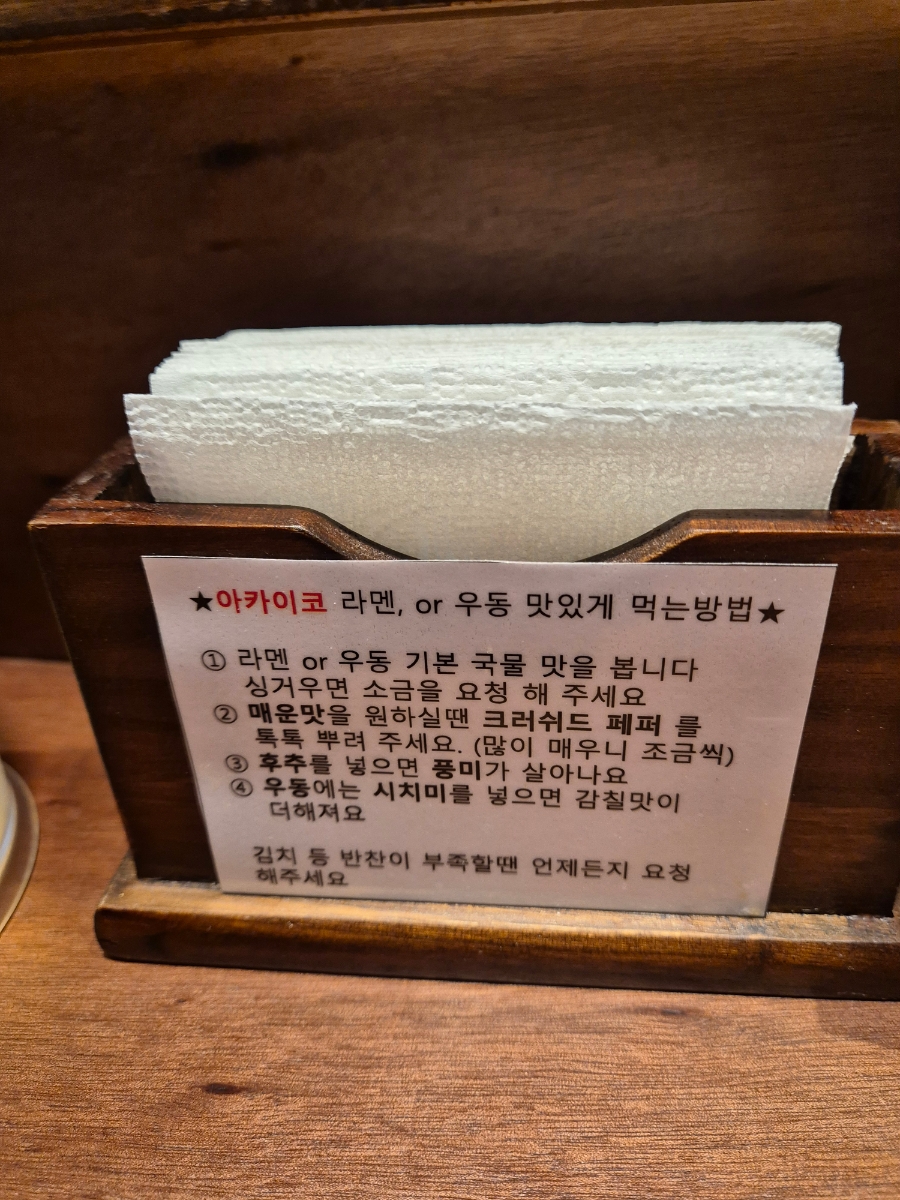 ★아카이코 라멘, or 우동 맛있게 먹는방법★
① 라멘 or 우동 기본 국물 맛을 봅니다
싱거우면 소금을 요청 해 주세요
② 매운맛을 원하실땐 크러쉬드 페퍼 를
톡톡 뿌려 주세요. (많이 매우니 조금씩)
③ 후추를 넣으면 풍미가 살아나요
④ 우동에는 시치미를 넣으면 감칠맛이
더해져요
김치 등 반찬이 부족할땐 언제든지 요청
해주세요